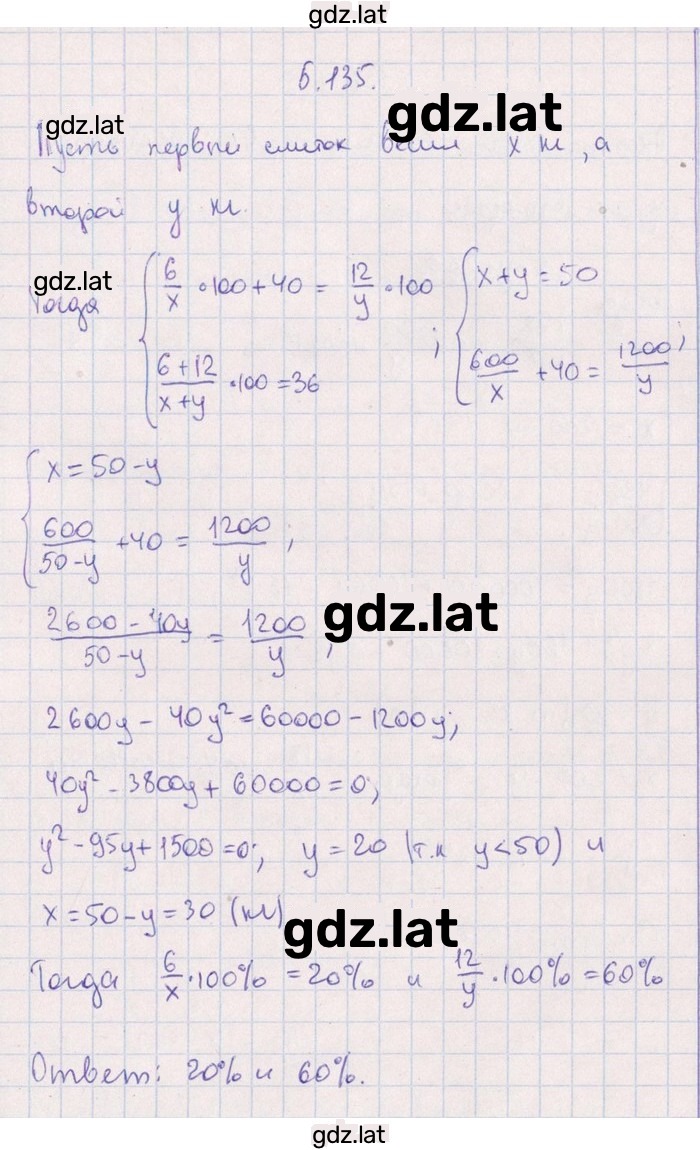 gdz.lat
6.135.
gdz.lat
gdz.lat
Пусть первый слиток весил x кг, а
второй y кг.
gdz.lat
Тогда { 6/x • 100 + 40 = 12/y • 100 ; { x + y = 50
(6 + 12)/(x + y) • 100 = 36 600/x + 40 = 1200/y ;
{ x = 50 - y
600/(50 - y) + 40 = 1200/y ;
gdz.lat
(2600 - 40y)/(50 - y) = 1200/y ;
2600y - 40y² = 60000 - 1200y;
40y² - 3800y + 60000 = 0;
y² - 95y + 1500 = 0; y = 20 (т.к y < 50) и
x = 50 - y = 30 (кг)
gdz.lat
Тогда 6/x • 100% = 20% и 12/y • 100% = 60%
Ответ: 20% и 60%.
gdz.lat